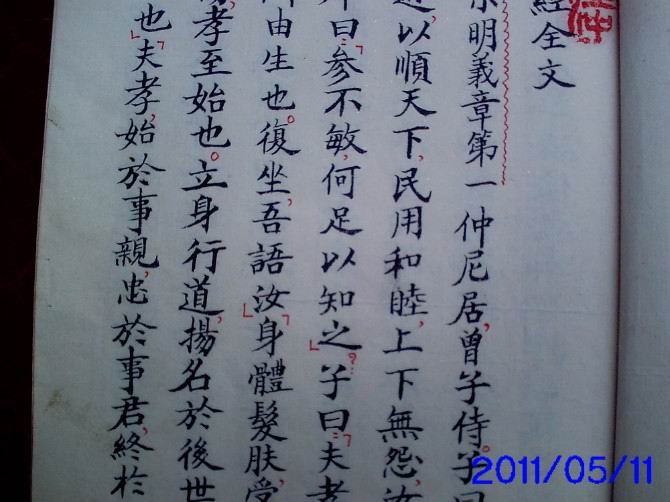 經全文
宗明義章第一仲尼居,曾子侍。子曰
道,以順天下,民用和睦,上下無怨,汝
曰:「參不敏,何足以知之?」子曰:「夫孝
由生也。復坐,吾語汝」「身體髮膚,受
孝至始也。立身行道,揚名於後世
也」「夫孝,始於事親,忠於事君,終於
2011/05/11